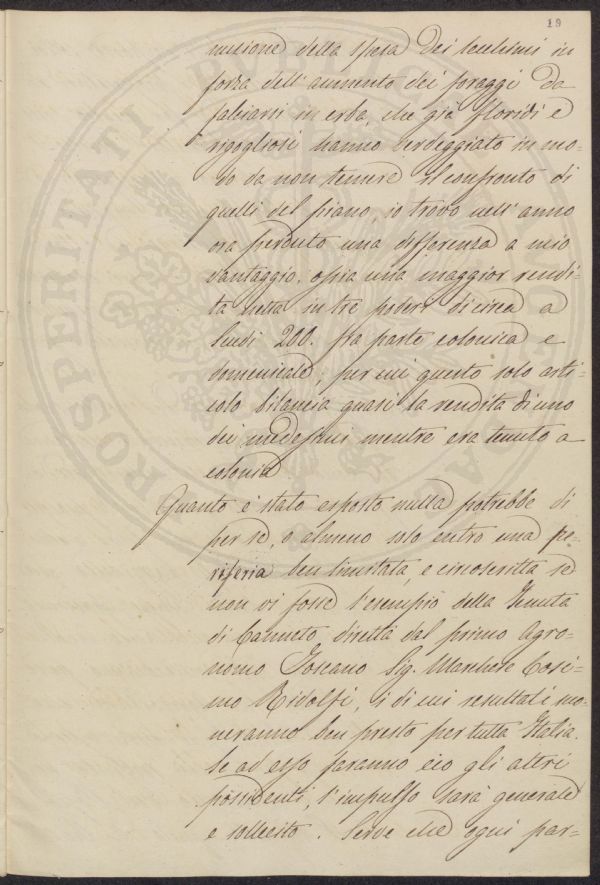 19
nuzione della spesa dei lendini in
forza dell'aumento dei foraggi da
falciarsi in erba, che già floridi e
rigogliosi hanno verdeggiato in mo-
do da non temere il confronto di
quelli del piano, io trovo nell'anno
ora perduto una differenza a mio
vantaggio, ossia una maggior rendi-
ta netta in tre poderi di circa a
Scudi 200. fra parte colonica e
domenicale, per cui questo solo arti-
colo bilancia quasi la rendita di uno
dei medesimi mentre era tenuto a
colonia
Quanto è stato esposto nulla potrebbe di
per se, o almeno solo entro una pe-
riferia ben limitata, e circoscritta se
non vi fosse l'esempio della Tenuta
di Canneto diretta dal primo Agro-
nomo Toscano Sig. Marchese Cosi-
mo Ridolfi, i di cui resultati mo-
veranno ben presto per tutta Italia.
Se ad esso faranno eco gli altri
possidenti, l'impulso sarà generale
e sollecito. Serve che ogni par-
PROSPERITATI PUBLICAE